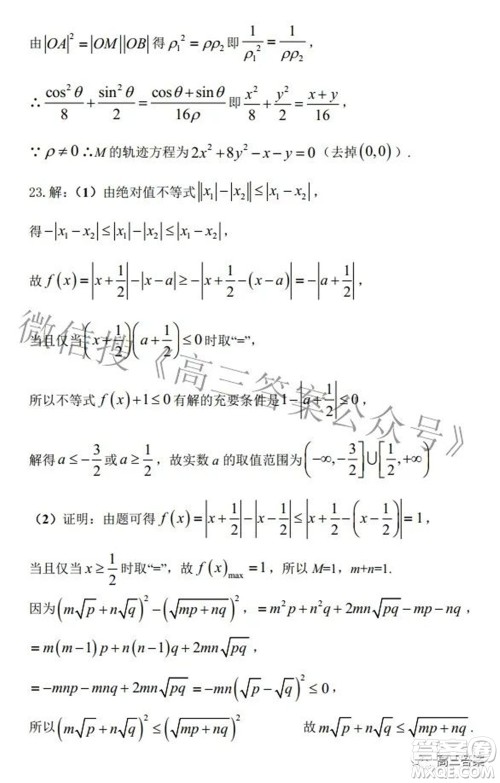 由|OA|²=|OM||OB|得ρ₁²=ρρ₂即1/ρ₁²=1/(ρρ₂)，
∴cos²θ/8+sin²θ/2=(cosθ+sinθ)/(16ρ)即x²/8+y²/2=(x+y)/16，
∵ρ≠0∴M的轨迹方程为2x²+8y²-x-y=0（去掉(0,0)）.
23.解：（1）由绝对值不等式||x₁|-|x₂||≤|x₁-x₂|，
得-|x₁-x₂|≤|x₁|-|x₂|≤|x₁-x₂|，
故f(x)=|x+1/2|-|x-a|≥-|x+1/2-(x-a)|=-|a+1/2|，
当且仅当(x+1/2)(a+1/2)≤0时取“=”，
所以不等式f(x)+1≤0有解的充要条件是1-|a+1/2|≤0，
解得a≤-3/2或a≥1/2，故实数a的取值范围为(-∞,-3/2]∪[1/2,+∞)
（2）证明：由题可得f(x)=|x+1/2|-|x-1/2|≤|x+1/2-(x-1/2)|=1，
当且仅当x≥1/2时取“=”，故f(x)max=1，所以M=1，m+n=1.
因为(m√p+n√q)²-(√(mp+nq))²，=m²p+n²q+2mn√(pq)-mp-nq，
=m(m-1)p+n(n-1)q+2mn√(pq)，
=-mnp-mnq+2mn√(pq)=-mn(√p-√q)²≤0，
所以(m√p+n√q)²≤(√(mp+nq))² 故m√p+n√q≤√(mp+nq).
微信搜《高三答案公众号》
高三答案
MXQE.COM